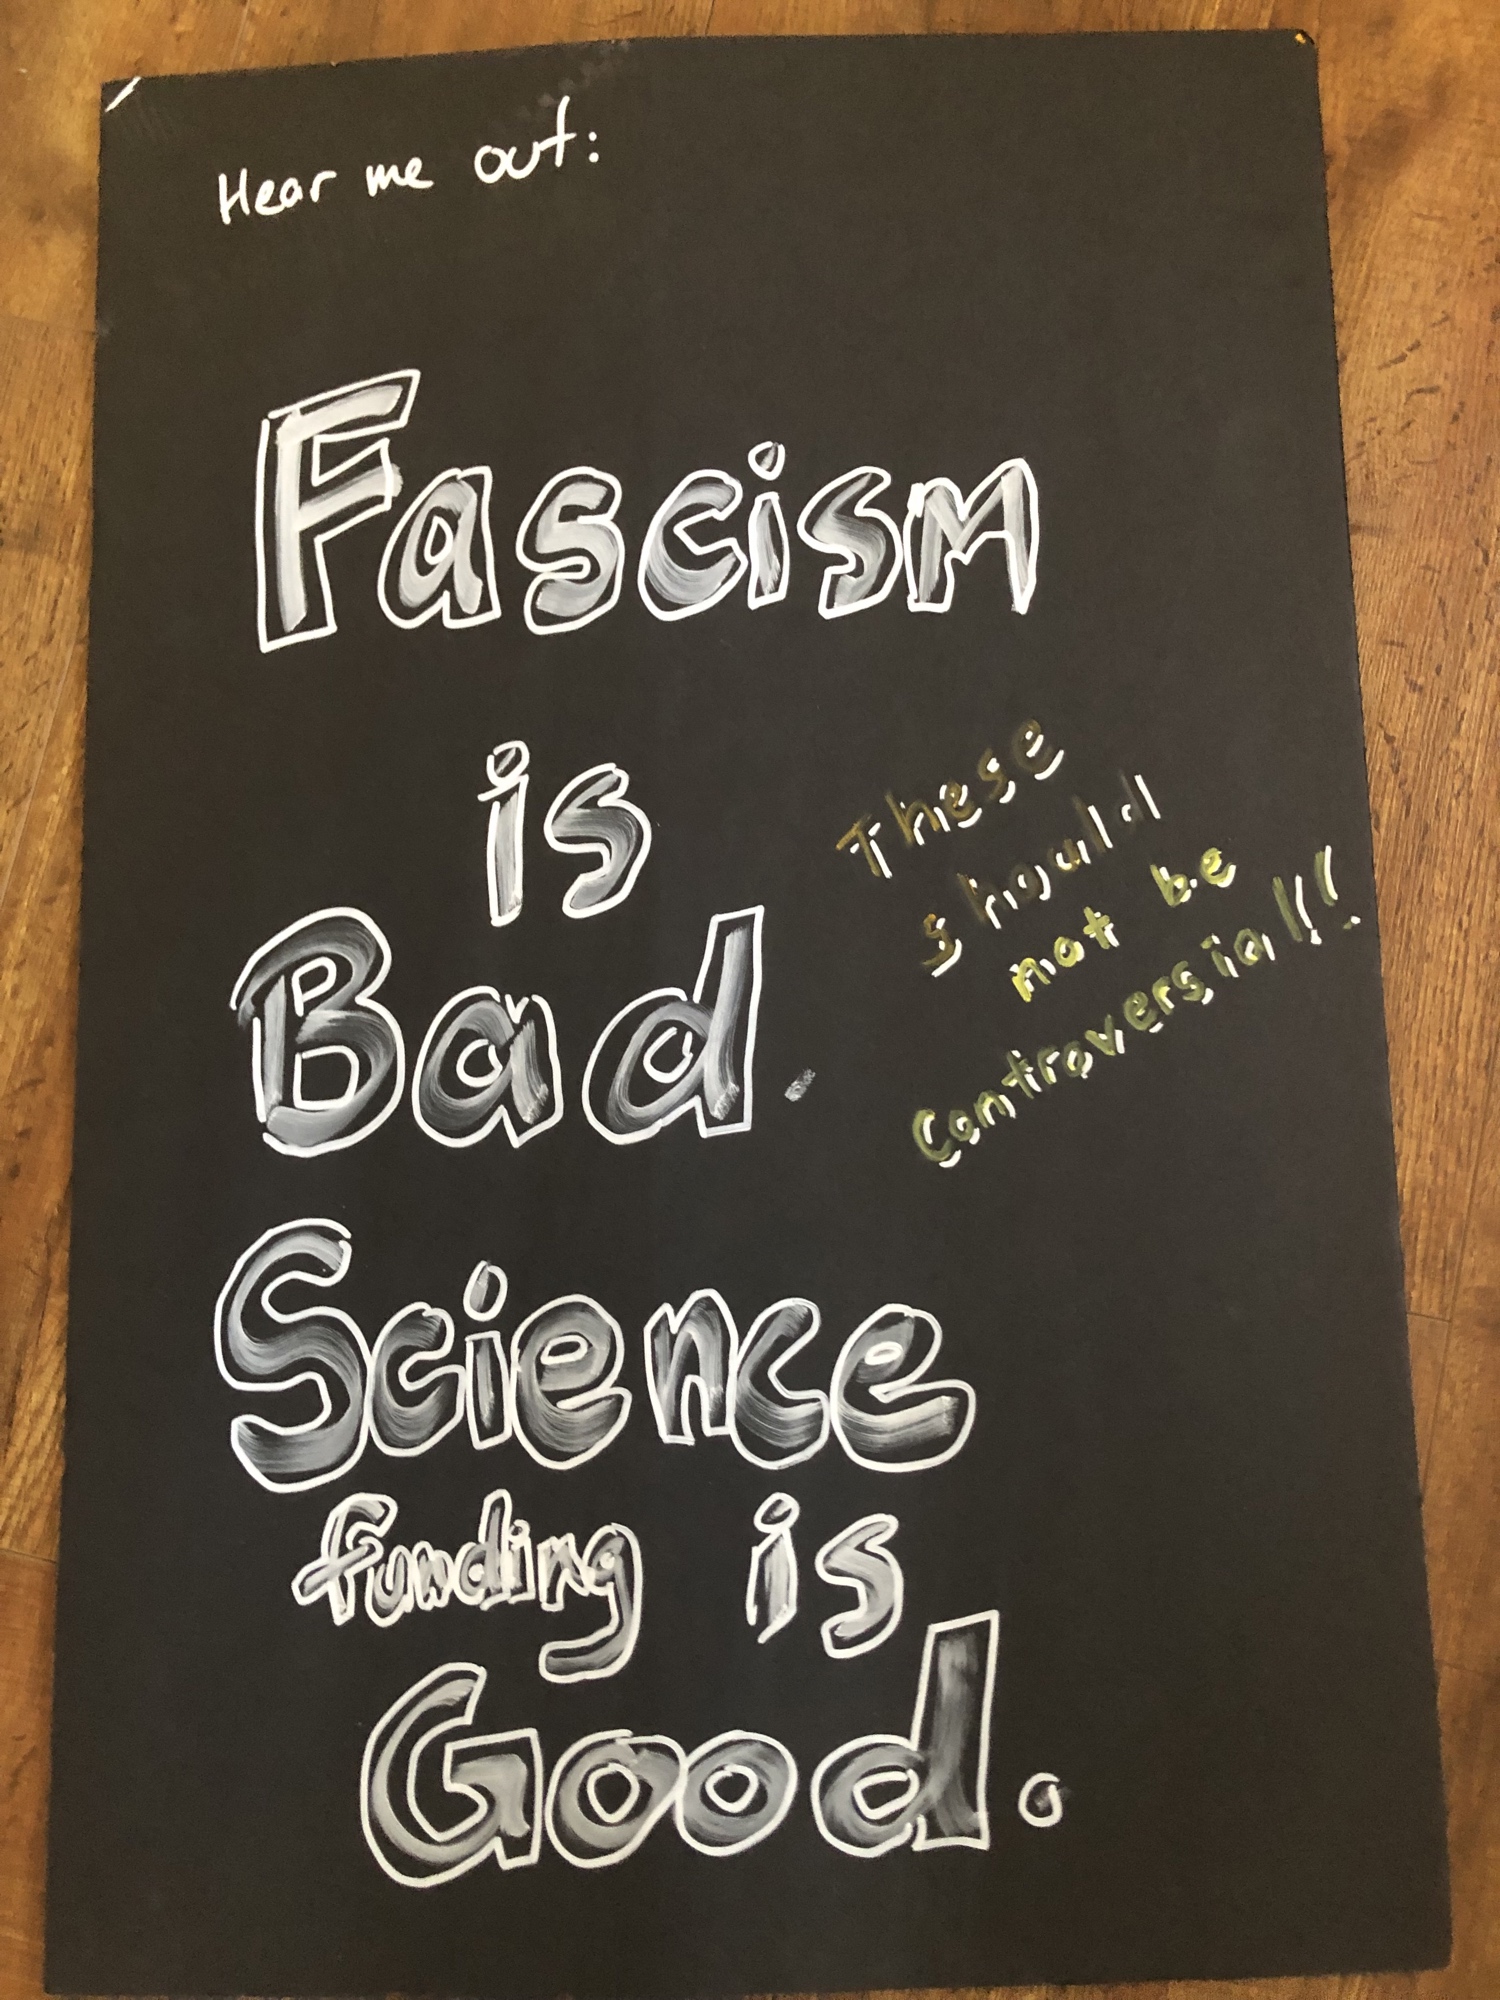 Hear me out:
Fascism
is
Bad.
These
should
not be
controversial!!
Science
funding is
Good.